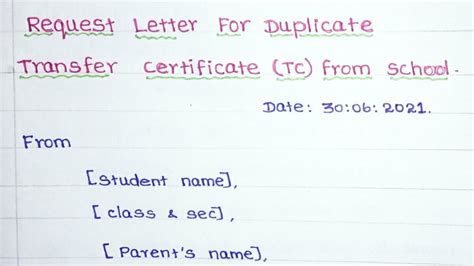 Request Letter For Duplicate
Transfer certificate (TC) from school.
Date: 30:06:2021.
From
[student name],
[class & sec],
[Parent's name],